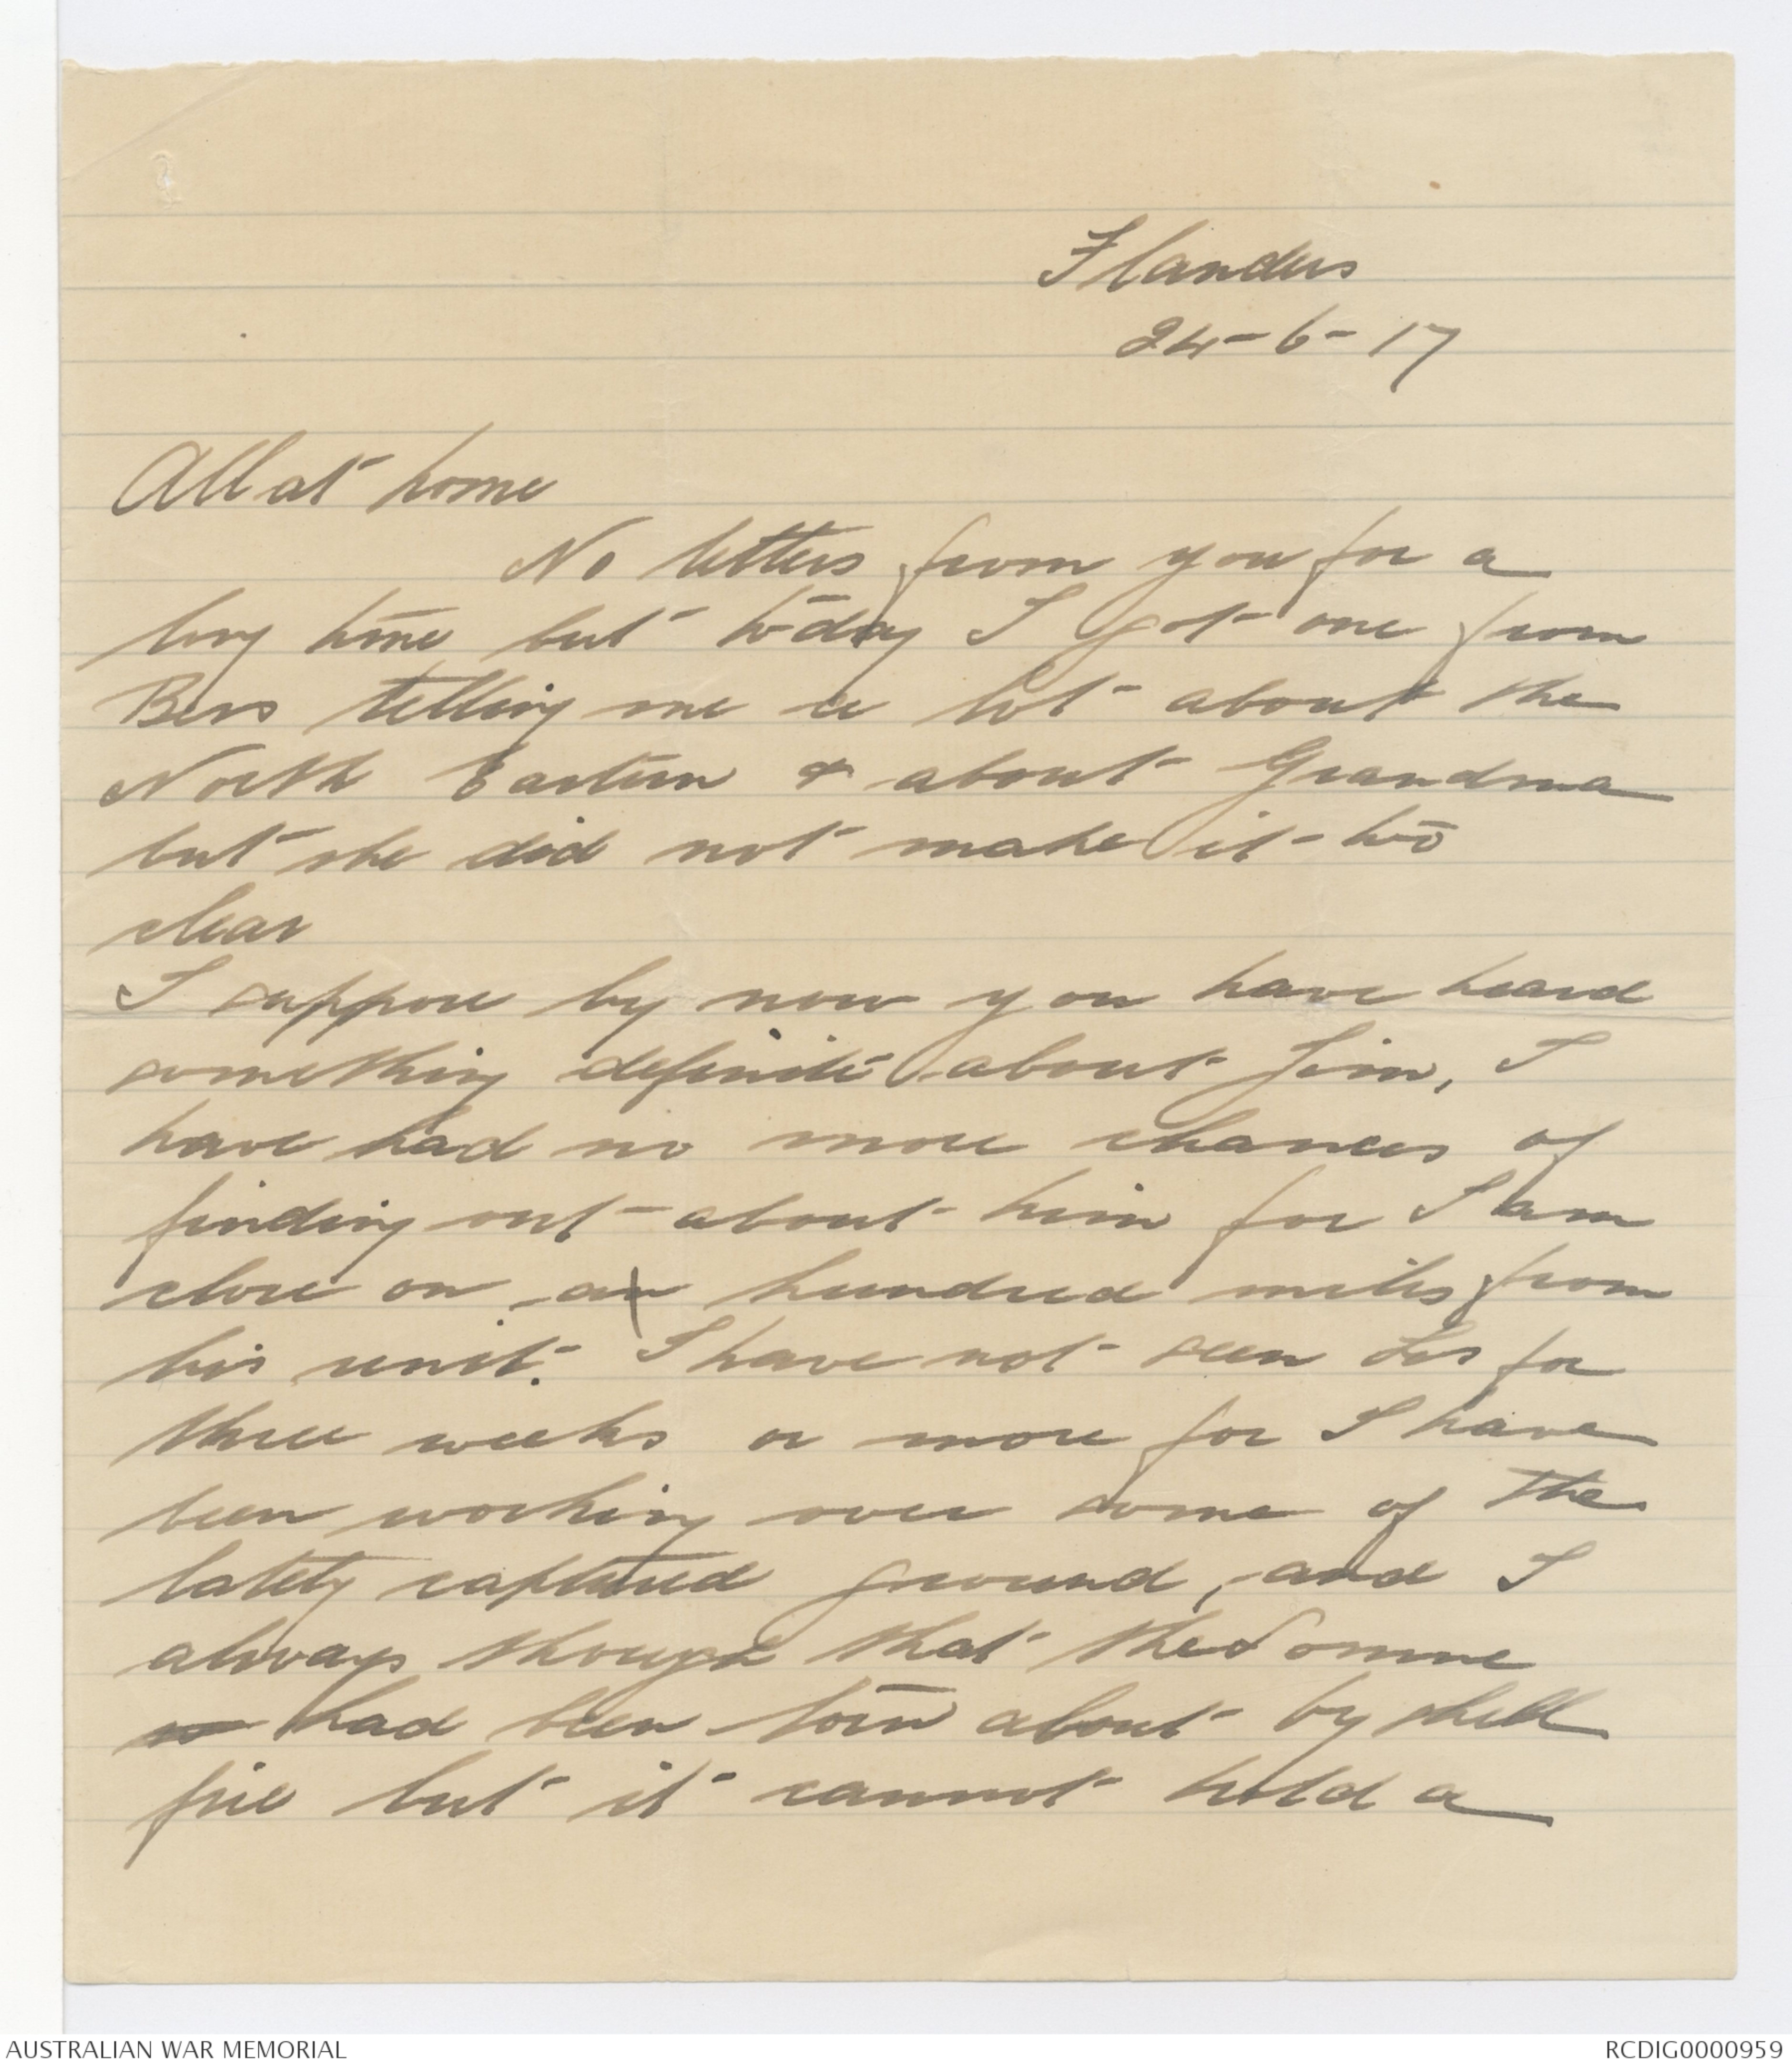 Flanders
24-6-17
All at home
No letters from you for a
long time but today I got one from
Bess telling me a lot about the
North Eastern & about Grandma
but she did not make it too
clear
I suppose by now you have heard
something definite about Jim, I
have had no more chances of
finding out about him for I am
close on a hundred miles from
his unit. I have not seen Les for
three weeks or more for I have
been working over some of the
lately captured ground, and I
always though that the Somme
had been torn about by shell
fire but it cannot hold a
AUSTRALIAN WAR MEMORIAL
RCDIG0000959